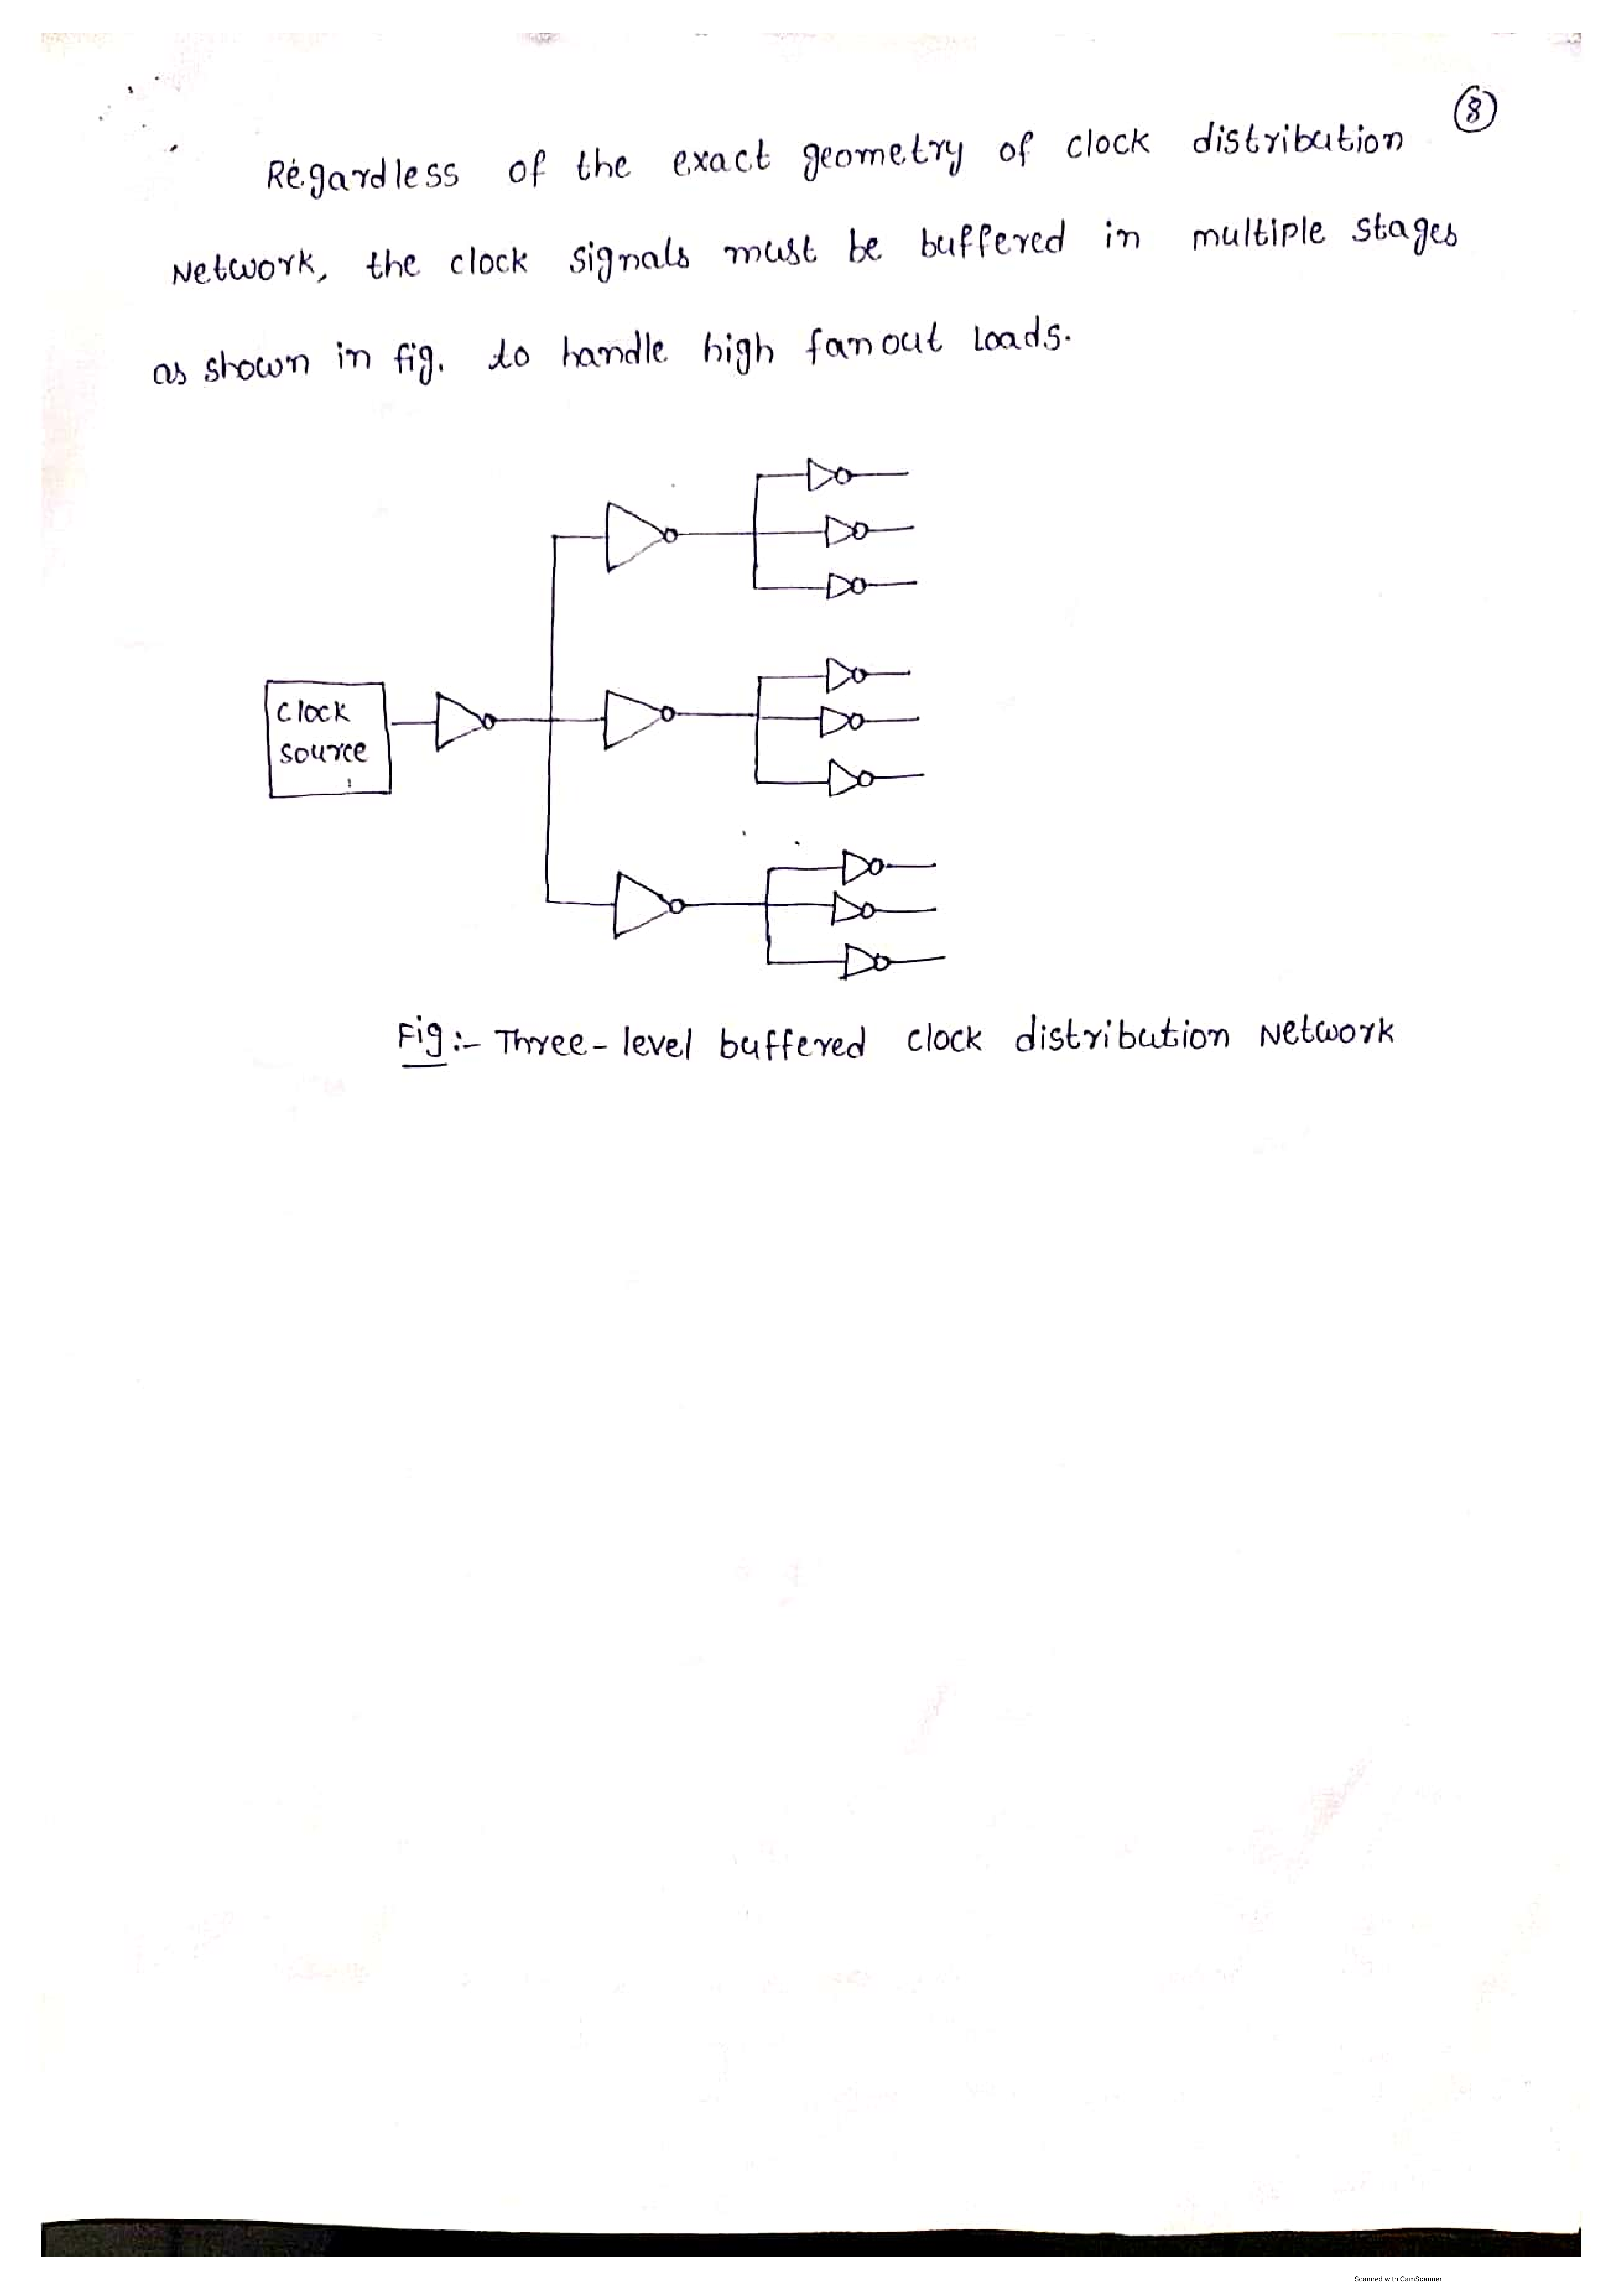 8
Regardless of the exact geometry of clock distribution
Network, the clock signals must be buffered in multiple stages
as shown in fig. to handle high fanout loads.
clock
source
Fig:- Three-level buffered clock distribution Network
Scanned with CamScanner